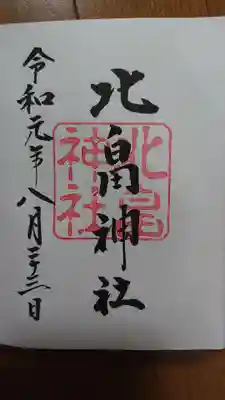 北畠神社
北畠
神社
令和元年八月二十三日